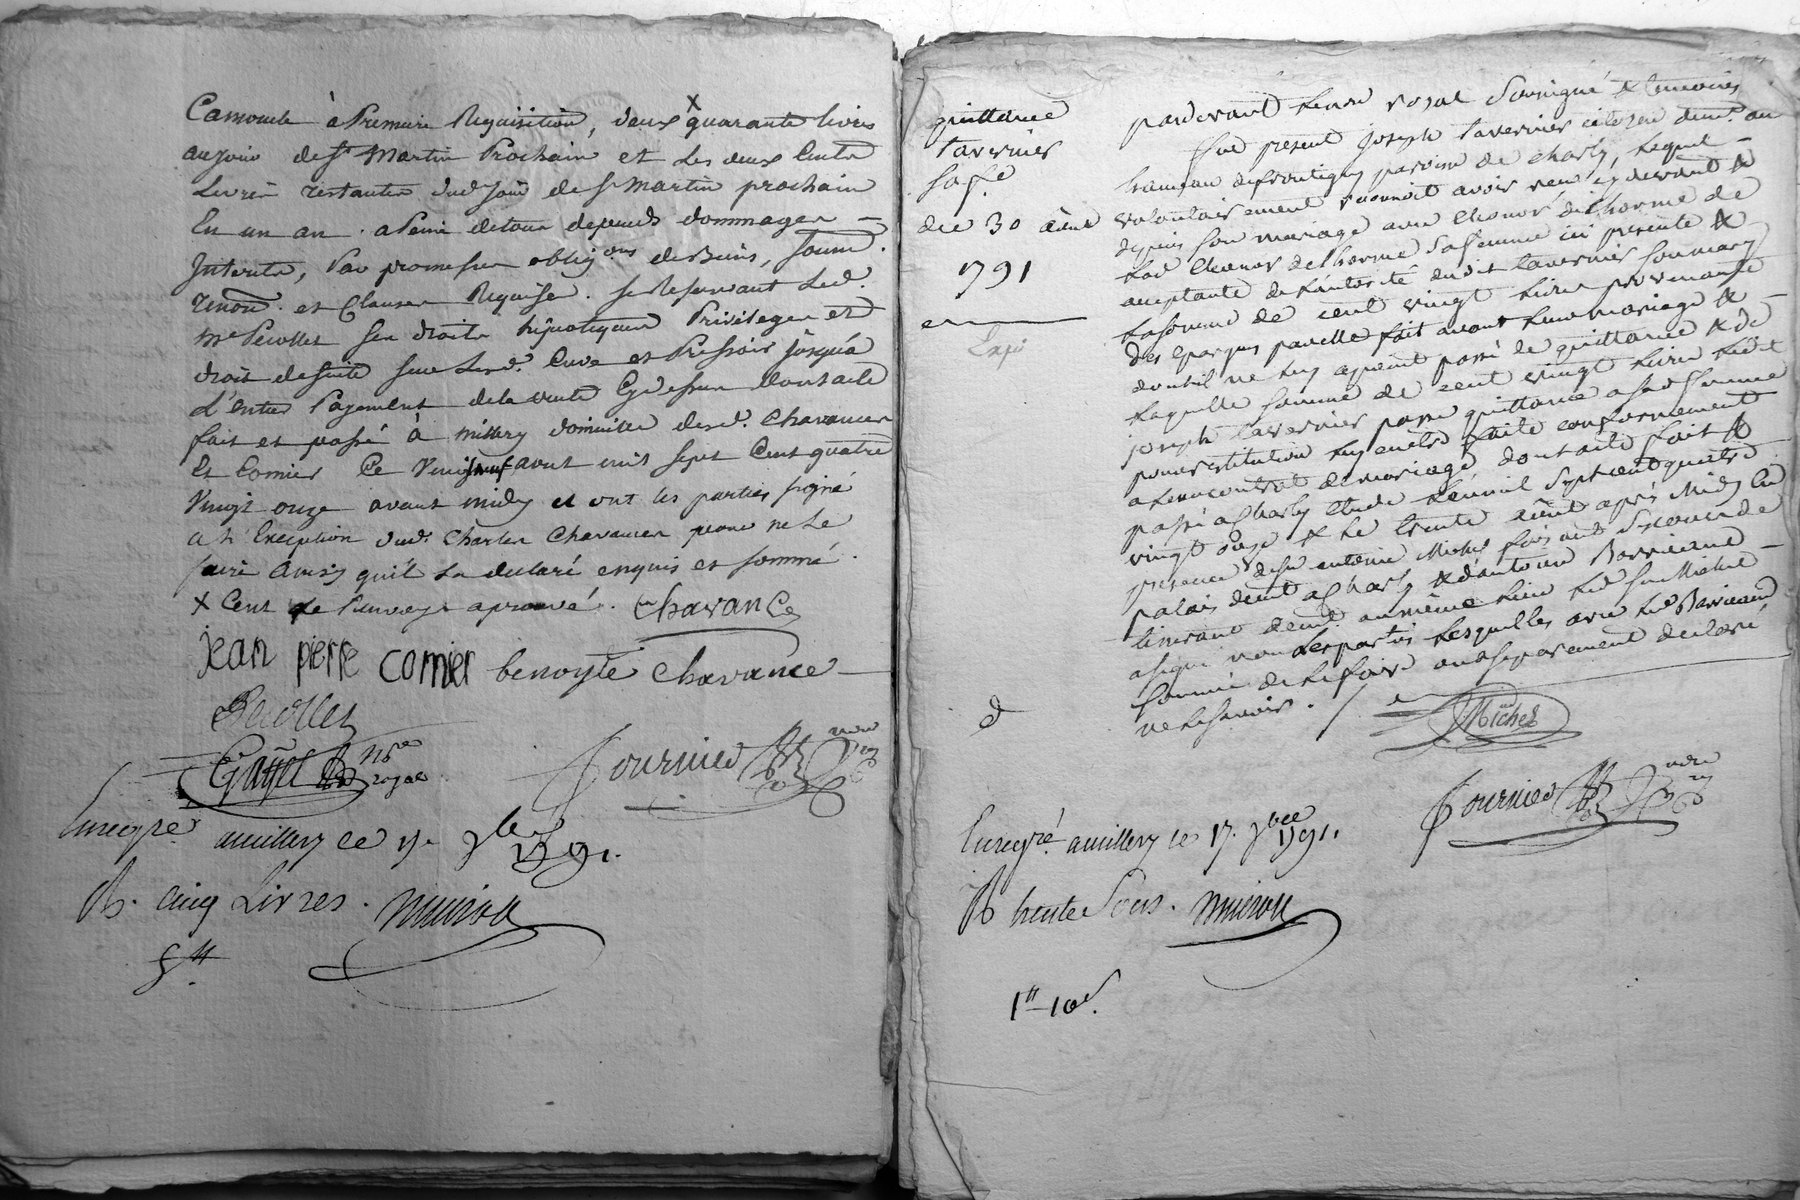 à Premiere Requisition, deux X quarante livres
au jour de St Martin Prochain et Les deux Cents
Livres restantes dud. jour de St martin prochain
En un an. a Peine de tous depends dommages
Interets, Par promesses oblig.ons de Biens, soum.
renon. et Clauses Requise. se Reservant Led.
Me Pecollet ses droits hipotequaires Privileges et
droit de suite sur Lesd. Cuve et Pressoir jusqu'a
d'Entier Payement de la vente Cy dessus Dont acte
fait et passé à millery domicille desd. Chavances
Et Comier Ce Vingt neuf aout mil sept Cent quatre
Vingt onze avant midy et ont les parties signé
a L'Exception dud. Charles Chavances pour ne Le
faire Ainsy qu'il L'a declaré enquis et sommé.
X Cent Le Renvoy aprouvé. Chavance
jean pierre comier benoyte chavance
Pecollet
Gayet nore royal
fournier
Enregre amillery ce 17. 7bre 1791.
R. cinq Livres.
5 ll
quittance
tavernier
sa fe
du 30 aout
1791
Expé
pardevant
fut present joseph tavernier citoyen demt. au
hameau de frontigny paroisse de charly, lequel
volontairement reconnoit avoir reçu cy devant &
depuis son mariage avec Eleonor delhorme de
lad. Eleonor delhorme sa femme ici presente &
acceptante de l'autorité dudit tavernier son mary
la somme de cent vingt livres provenante
des epargnes par elle fait avant leur mariage &
dont il ne luy ayant passé de quittance & de
laquelle somme de cent vingt livres ledit
joseph tavernier passe quittance a sad. femme
pour restitution luy en etre faite conformement
a leur contrat de mariage, dont acte fait &
passé a Charly Etude l'an mil sept cent quatre
vingt onze & le trente aout après Midy En
presence de sr antoine Michel
palais demt a Charly & d'antoine Barricand
demt. au même lieu led. sr Michel
a signé non les parties lesquelles avec led. Barricand
sommés de le faire ont separement declaré
ne le savoir.
Michel
fournier
Enregré. amillery le 17. 7bre 1791.
R trente Sous.
1 ll - 10 s.